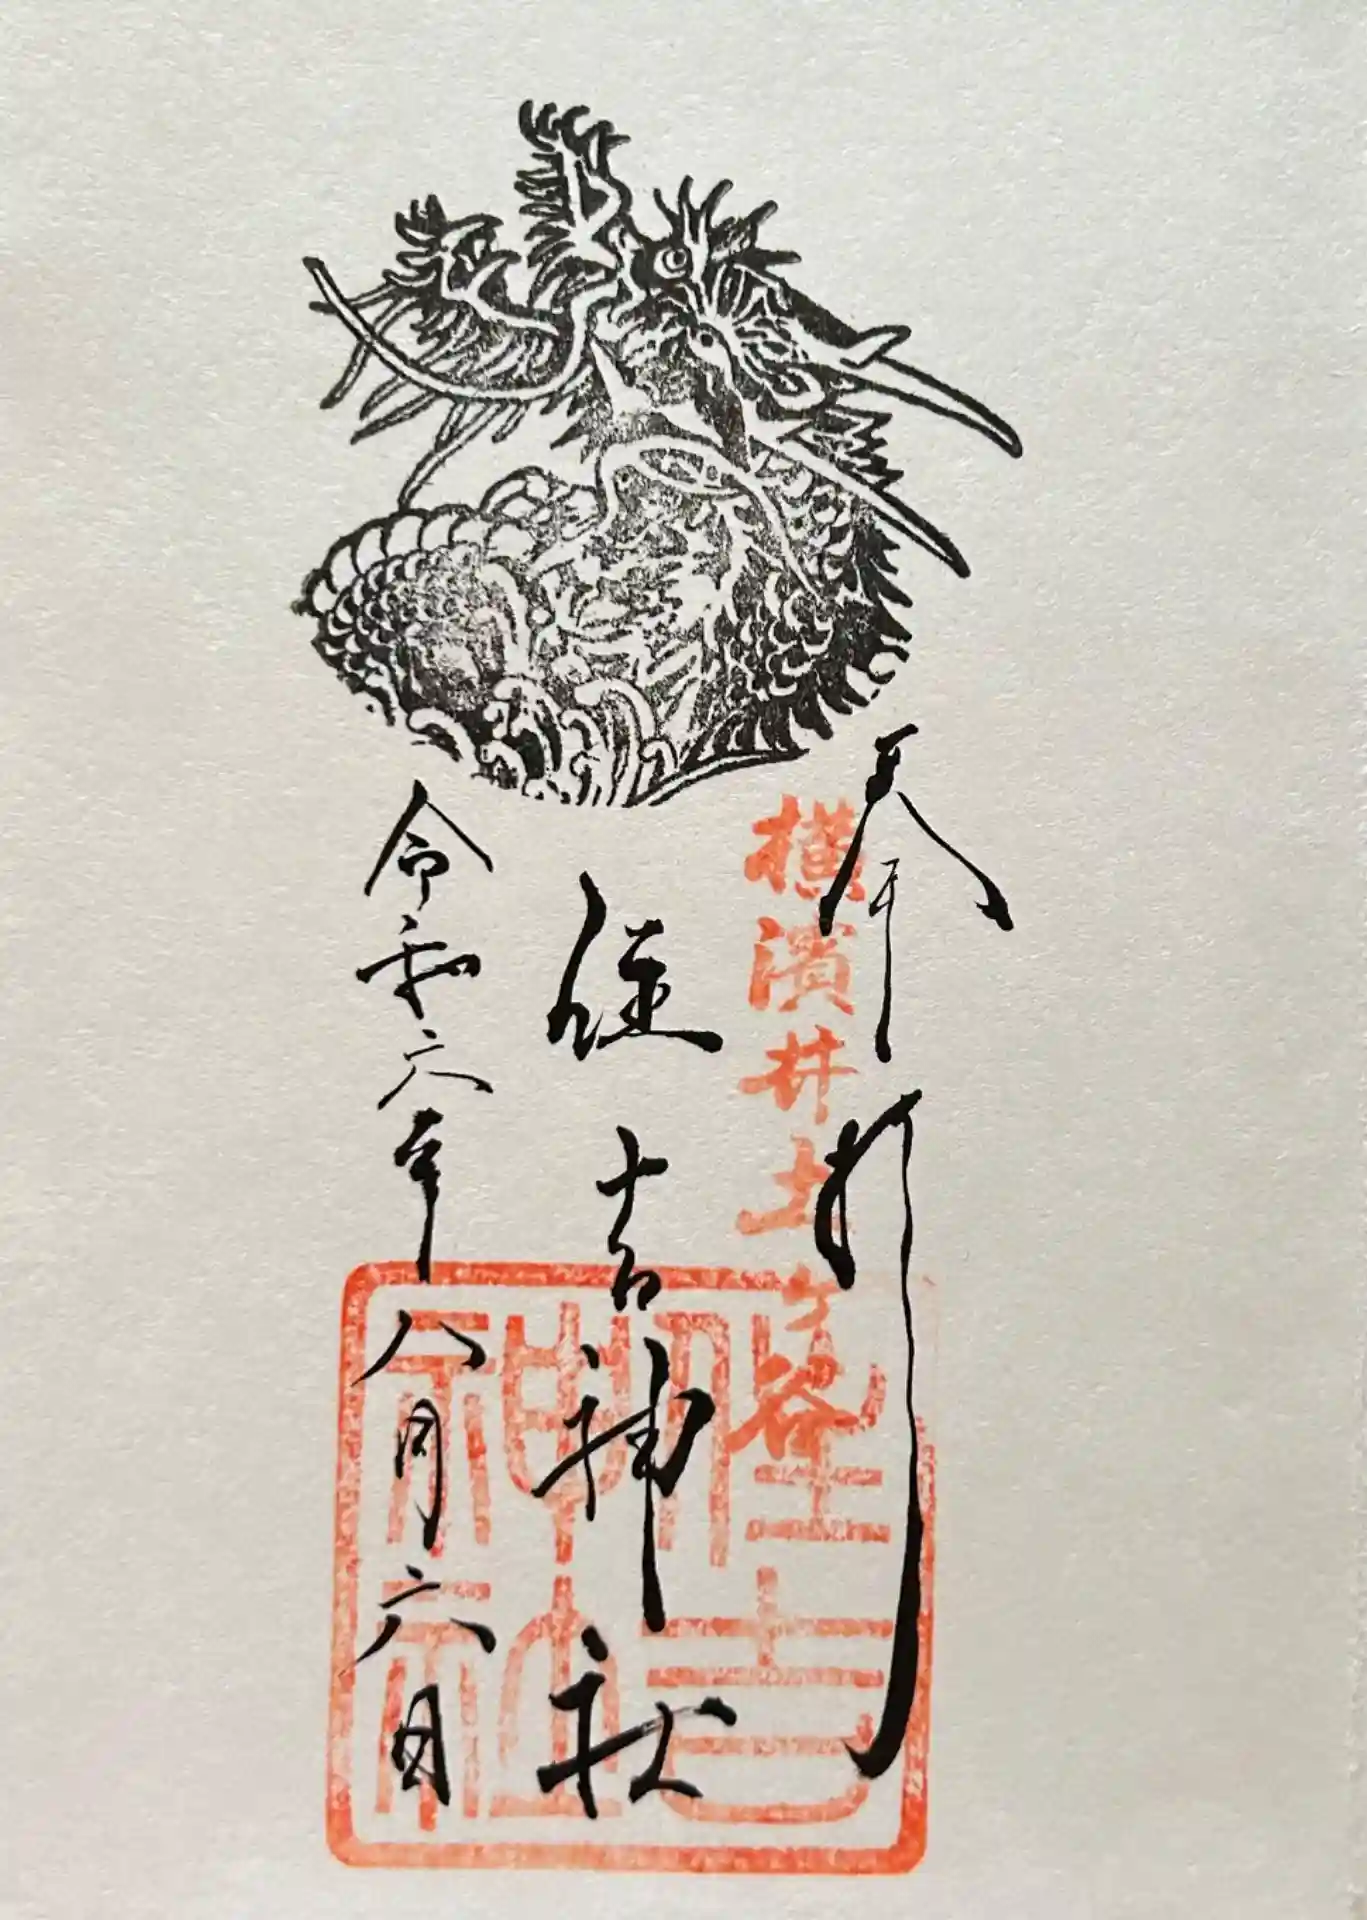 奉拝
横濱井土ヶ谷
住吉神社
住吉
神社
令和六年八月六日